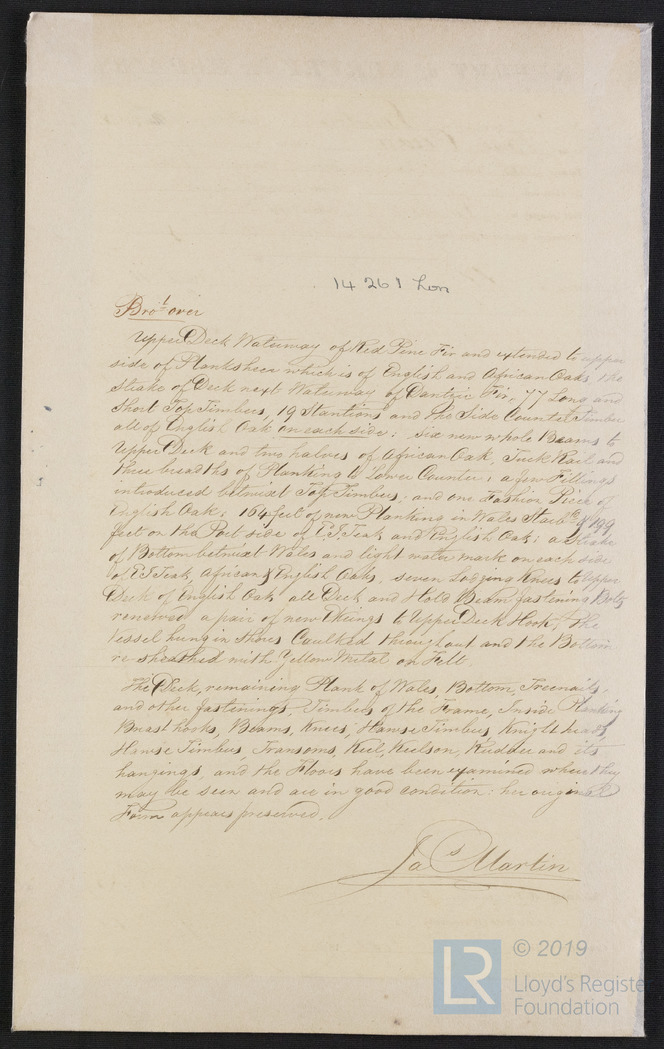 14261 Lon
Bro.t over
Upper Deck Waterway of Red Pine Fir and extended to upper
side of Planksheer which is of English and African Oak, the
Strake of Deck next Waterway of Dantzic Fir, 77 Long and
Short Top Timbers, 19 Stantions and the Side Counter Timber
all of English Oak on each side; six new whole Beams to
Upper Deck and two halves of African Oak, Tuck Rail and
three breadths of Planking to Lower Counter; a few Fillings
introduced betwixt Top Timbers; and one Fashion Piece of
English Oak; 164 feet of new Planking in Wales Starb.d & 199
feet on the Port side of E I Teak and English Oak; a Strake
of Bottom betwixt Wales and light water mark on each side
of E I Teak, African & English Oaks, seven Lodging Knees to Upper
Deck of English Oak, all Deck and Hold Beam fastening Bolts
renewed, a pair of new Ekeings to Upper Deck Hook, The
Vessel hung in Shores Caulked throughout and the Bottom
re-sheathed with Yellow Metal on Felt.
The Deck, remaining Plank of Wales, Bottom, Treenails,
and other fastenings, Timbers of the Frame, Inside Planking
Breasthooks, Beams, Knees, Hawse Timbers, Knightheads,
Hawse Timbers, Transoms, Keel, Keelson, Rudder and its
hangings, and the Floors have been examined where they
may be seen and are in good condition: her original
Form appears preserved.
Jas Martin
LR © 2019
Lloyd's Registe
Foundation